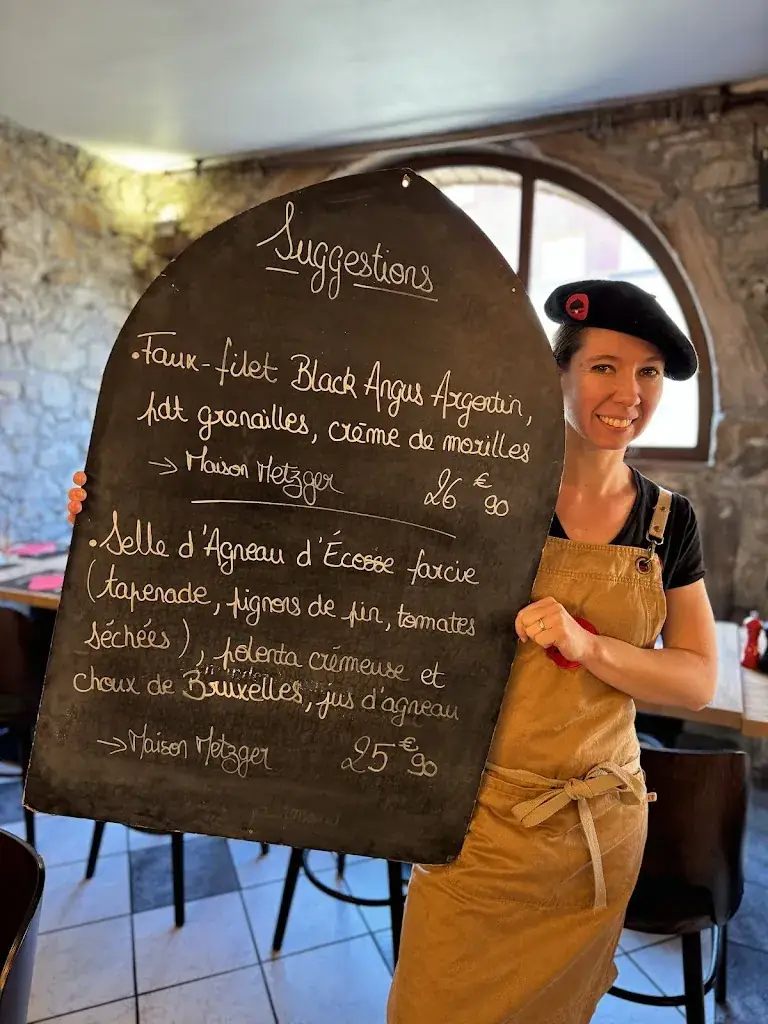 Suggestions
• Faux-filet Black Angus Argentin,
pdt grenailles, crème de morilles
→ Maison Metzger 26 €90
• Selle d'Agneau d'Écosse farcie
(tapenade, pignons de pin, tomates
séchées), polenta crémeuse et
choux de Bruxelles, jus d'agneau
→ Maison Metzger 25 €90